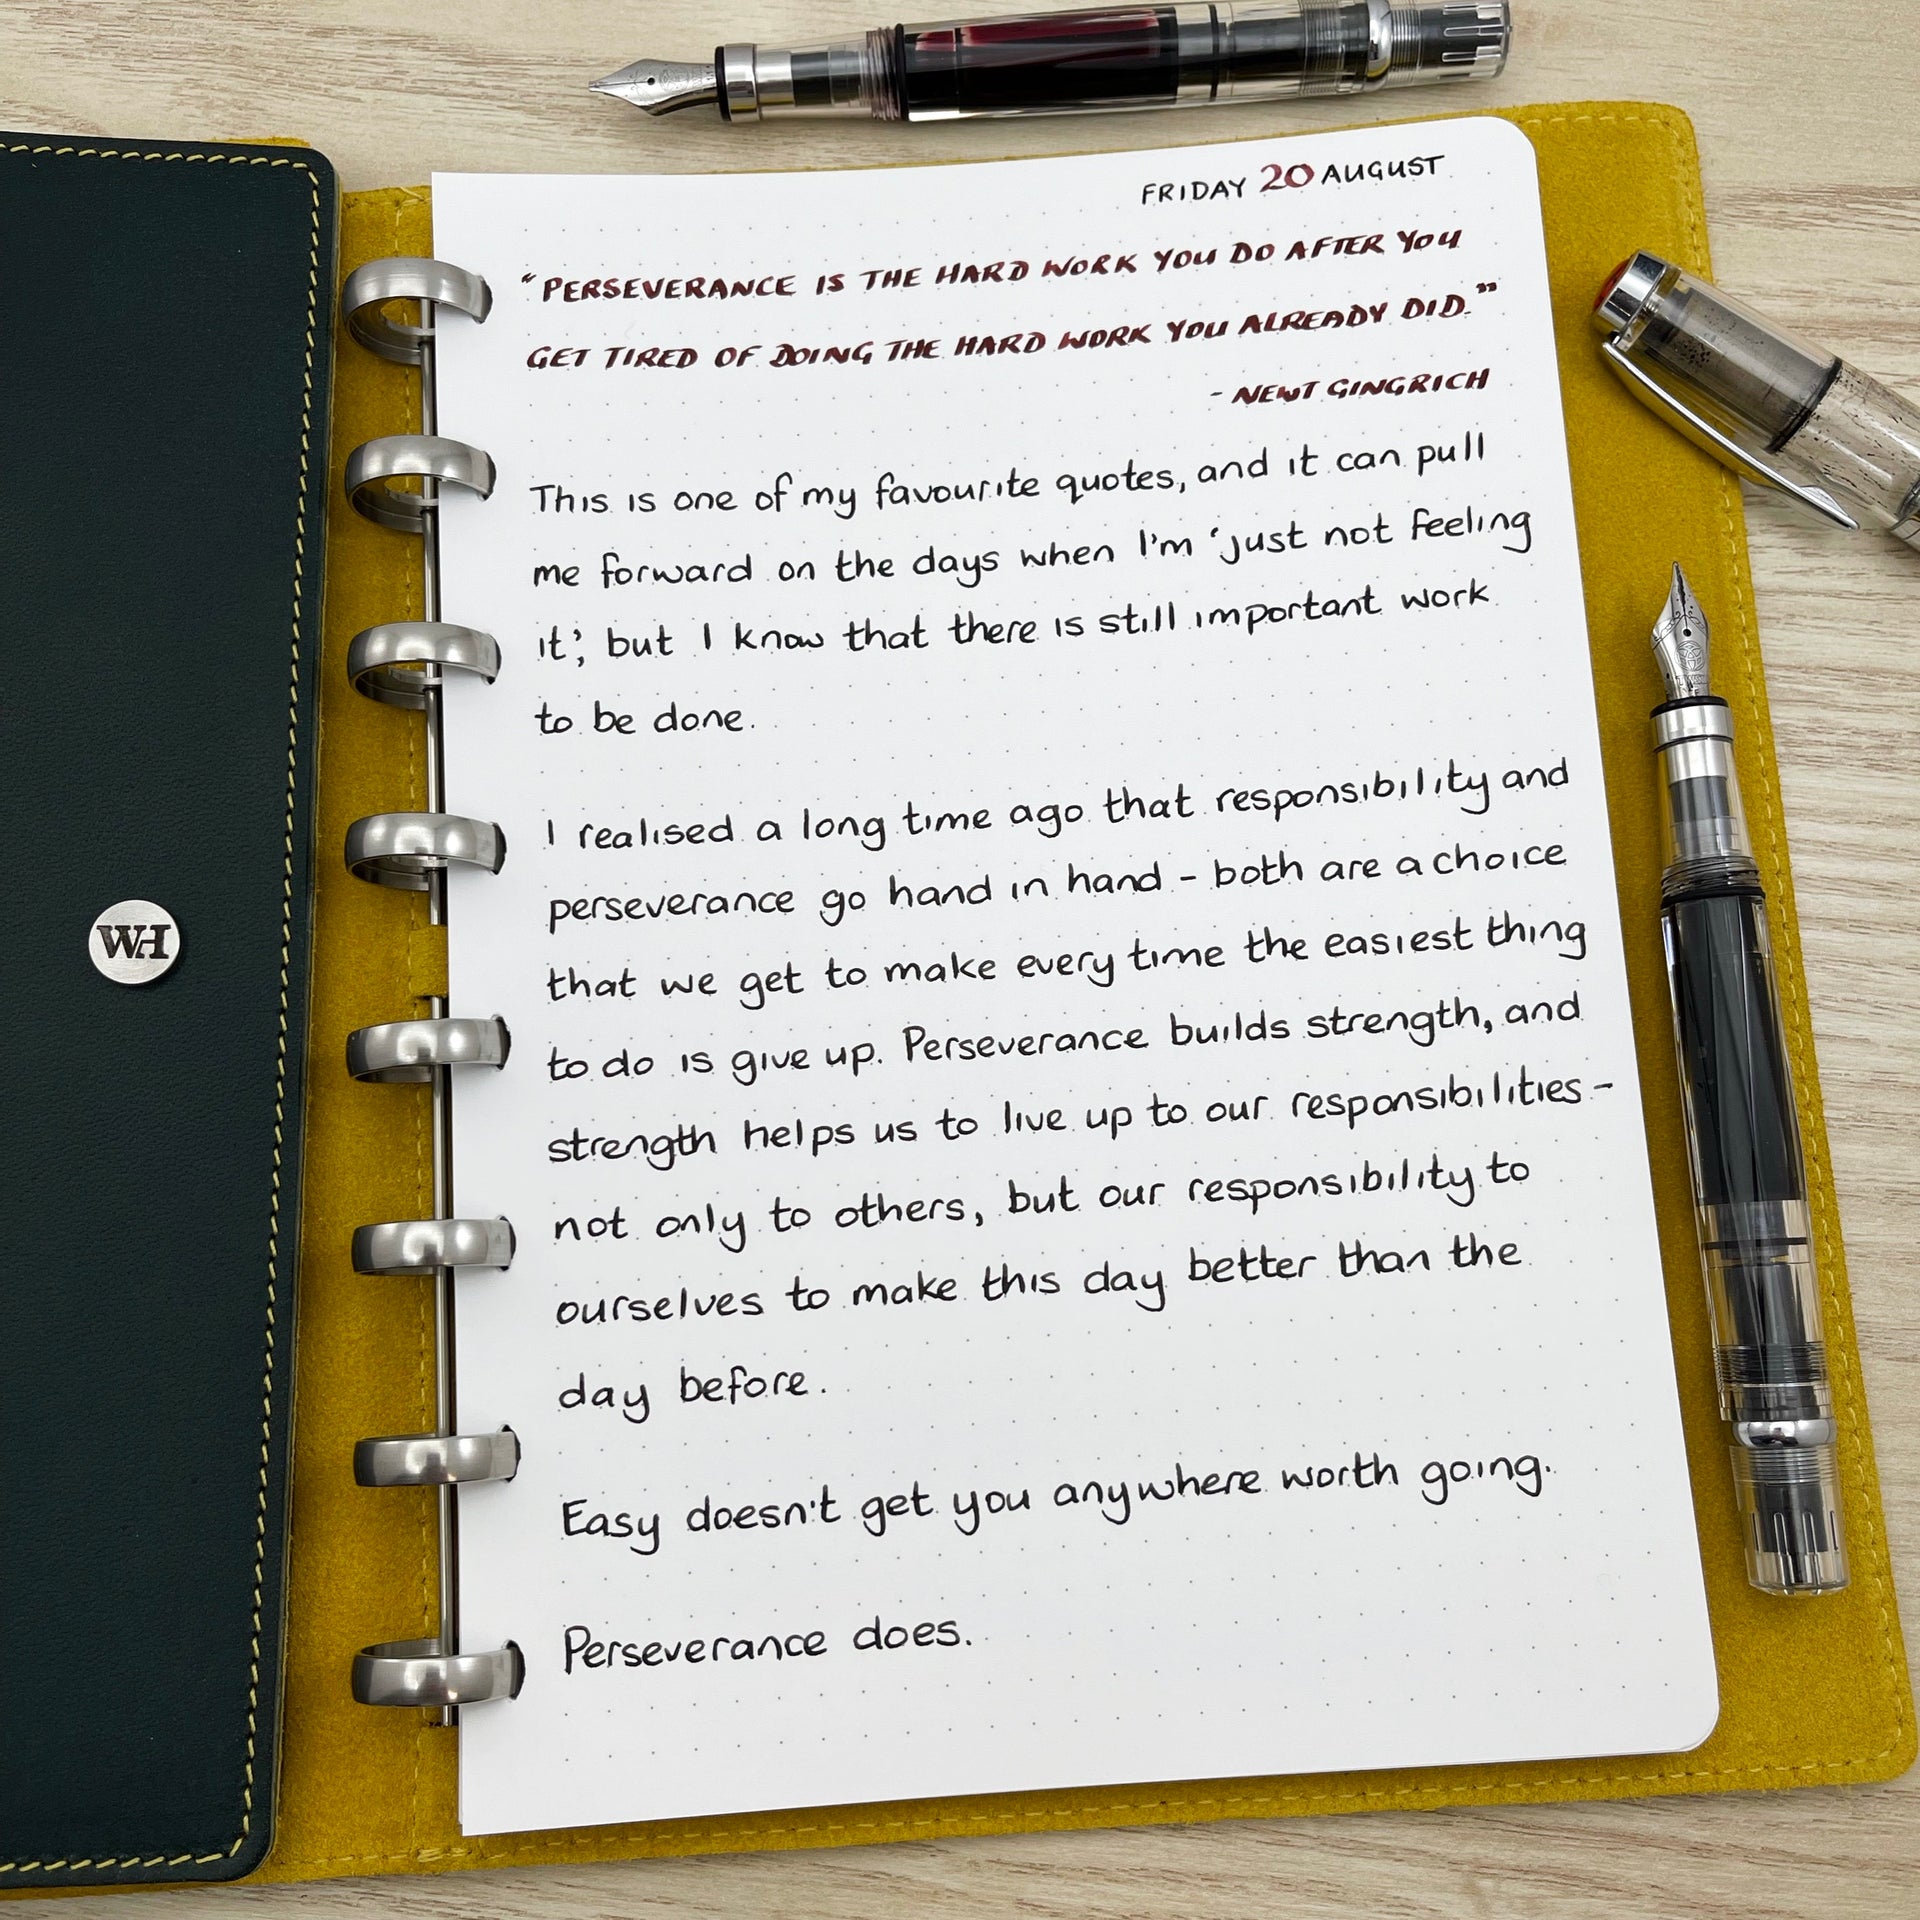 FRIDAY 20 AUGUST
“PERSEVERANCE IS THE HARD WORK YOU DO AFTER YOU
GET TIRED OF DOING THE HARD WORK YOU ALREADY DID.”
- NEWT GINGRICH
This is one of my favourite quotes, and it can pull
me forward on the days when I'm 'just not feeling
it', but I know that there is still important work
to be done.
I realised a long time ago that responsibility and
perseverance go hand in hand - both are a choice
that we get to make every time the easiest thing
to do is give up. Perseverance builds strength, and
strength helps us to live up to our responsibilities -
not only to others, but our responsibility to
ourselves to make this day better than the
day before.
Easy doesn't get you anywhere worth going.
Perseverance does.
WH